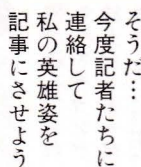 そうだ…
今度記者たちに
連絡して
私の英雄姿を
記事にさせよう